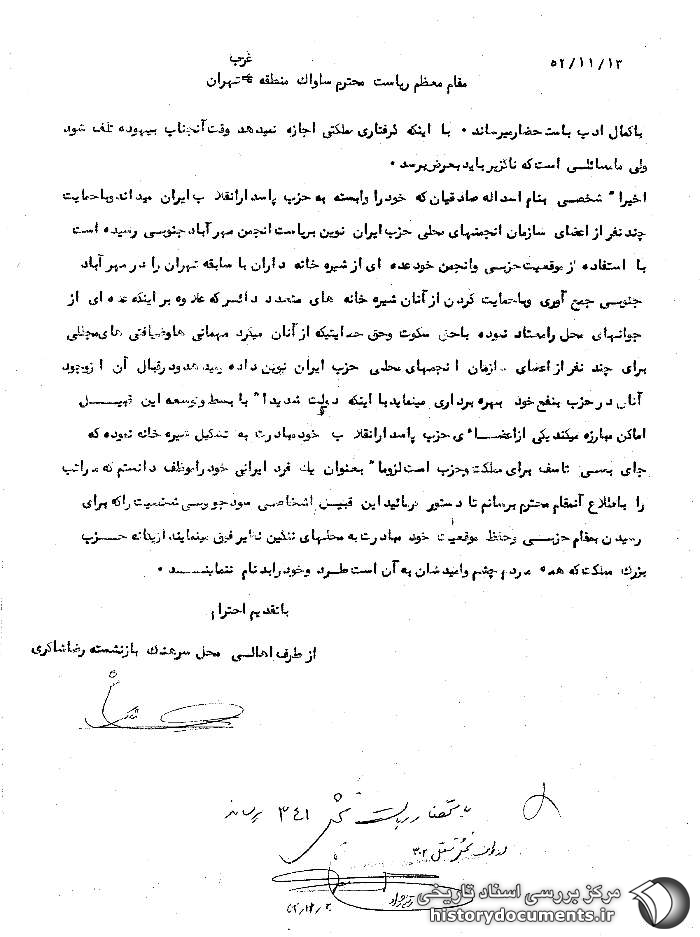 ۵۲/۱۱/۱۳
غرب
مقام معظم ریاست محترم ساواک منطقه تهران
باکمال ادب باستحضار میرساند . با اینکه گرفتاری مملکتی اجازه نمیدهد وقت آنجناب بیهوده تلف شود
ولی مسائلی است که ناگزیر باید بعرض برسد .
اخیرا" شخصی بنام اسداله صادقیان که خود را وابسته به حزب پاسدارانقلاب ایران میداند وباحمایت
چند نفر از اعضای سازمان انجمنهای محلی حزب ایران نوین بریاست انجمن مهر آباد جنوبی رسیده است
با استفاده از موقعیت حزبی وانجمن خود عده ای از شیره خانه داران با سابقه تهران را در مهر آباد
جنوبی جمع آوری وباحمایت کردن از آنان شیره خانه های متعدد دائر که علاوه بر اینکه عده ای از
جوانهای محل رامعتاد نموده باحق سکوت وحق حمایتیکه از آنان میگیرد مهمانی هاوضیافتی های مجللی
برای چند نفر از اعضای سازمان انجمنهای محلی حزب ایران نوین داده ومیدهد ودرقبال آن از وجود
آنان در حزب بنفع خود بهره برداری مینماید با اینکه دولت شدیدا" با بسط وتوسعه این قبیل
اماکن مبارزه میکند یکی از اعضای حزب پاسدارانقلاب خود مبادرت به تشکیل شیره خانه نموده که
جای بسی تاسف برای مملکت وحزب است لزوما" بعنوان یک فرد ایرانی خود راموظف دانستم که مراتب
را باطلاع آنمقام محترم برسانم تا دستور فرمائید این قبیل اشخاص سودجو وبی شخصیت راکه برای
رسیدن بمقام حزبی وحفظ موقعیت خود مبادرت به محلهای ننگین نظیر فوق مینمایند ازبدنه حزب
بزرگ مملکت که همه مردم چشم وامیدشان به آن است طرد وخود رابد نام ننمایند .
باتقدیم احترام
از طرف اهالی محل سرهنگ بازنشسته رضاشاکری
باستحضار ریاست بخش ۳۴۱ برساند
۳۰۲
مرکز بررسی اسناد تاریخی
historydocuments.ir